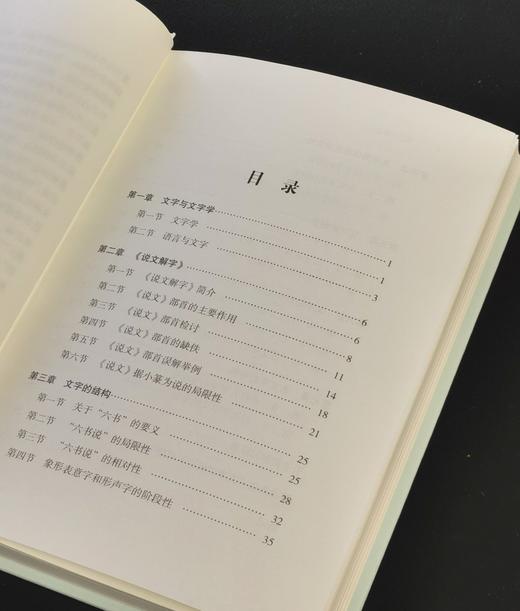 目 录
第一章 文字与文字学 1
第一节 文字学 1
第二节 语言与文字 3
第二章 《说文解字》 6
第一节 《说文解字》简介 6
第二节 《说文》部首的主要作用 8
第三节 《说文》部首检讨 11
第四节 《说文》部首的缺佚 14
第五节 《说文》部首误解举例 18
第六节 《说文》据小篆为说的局限性 21
第三章 文字的结构 25
第一节 关于“六书”的要义 25
第二节 “六书说”的局限性 28
第三节 “六书说”的相对性 32
第四节 象形表意字和形声字的阶段性 35